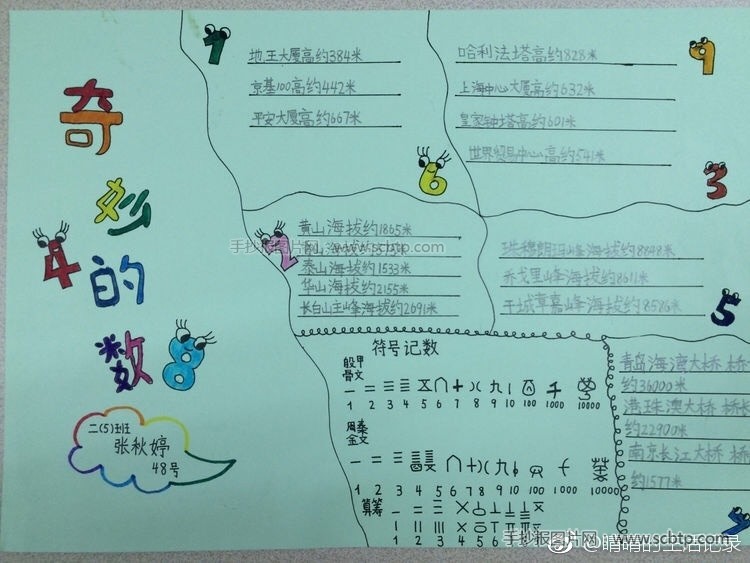 奇妙的数
二(5)班
张秋婷
48号
地王大厦高约384米
京基100高约442米
平安大厦高约667米
哈利法塔高约828米
上海中心大厦高约632米
皇家钟塔高约601米
世界贸易中心高约541米
黄山海拔约1865米
手抄报图片网 www.scbtp.com
泰山海拔约1533米
华山海拔约2155米
长白山主峰海拔约2691米
珠穆朗玛峰海拔约8848米
乔戈里峰海拔约8611米
干城章嘉峰海拔约8586米
符号记数
殷甲
骨文
1 2 3 4 5 6 7 8 9 10 100 1000 10000
周秦
金文
1 2 3 4 5 6 7 8 9 10 100 1000 10000
算筹
1 2 3 4 5 6
青岛海湾大桥 桥
约36000米
港珠澳大桥 桥
约22900米
南京长江大桥 桥
约1577米
手抄报图片网 www.scbtp.com
@晴晴的生活记录
1
9
6
3
4
2
5
8